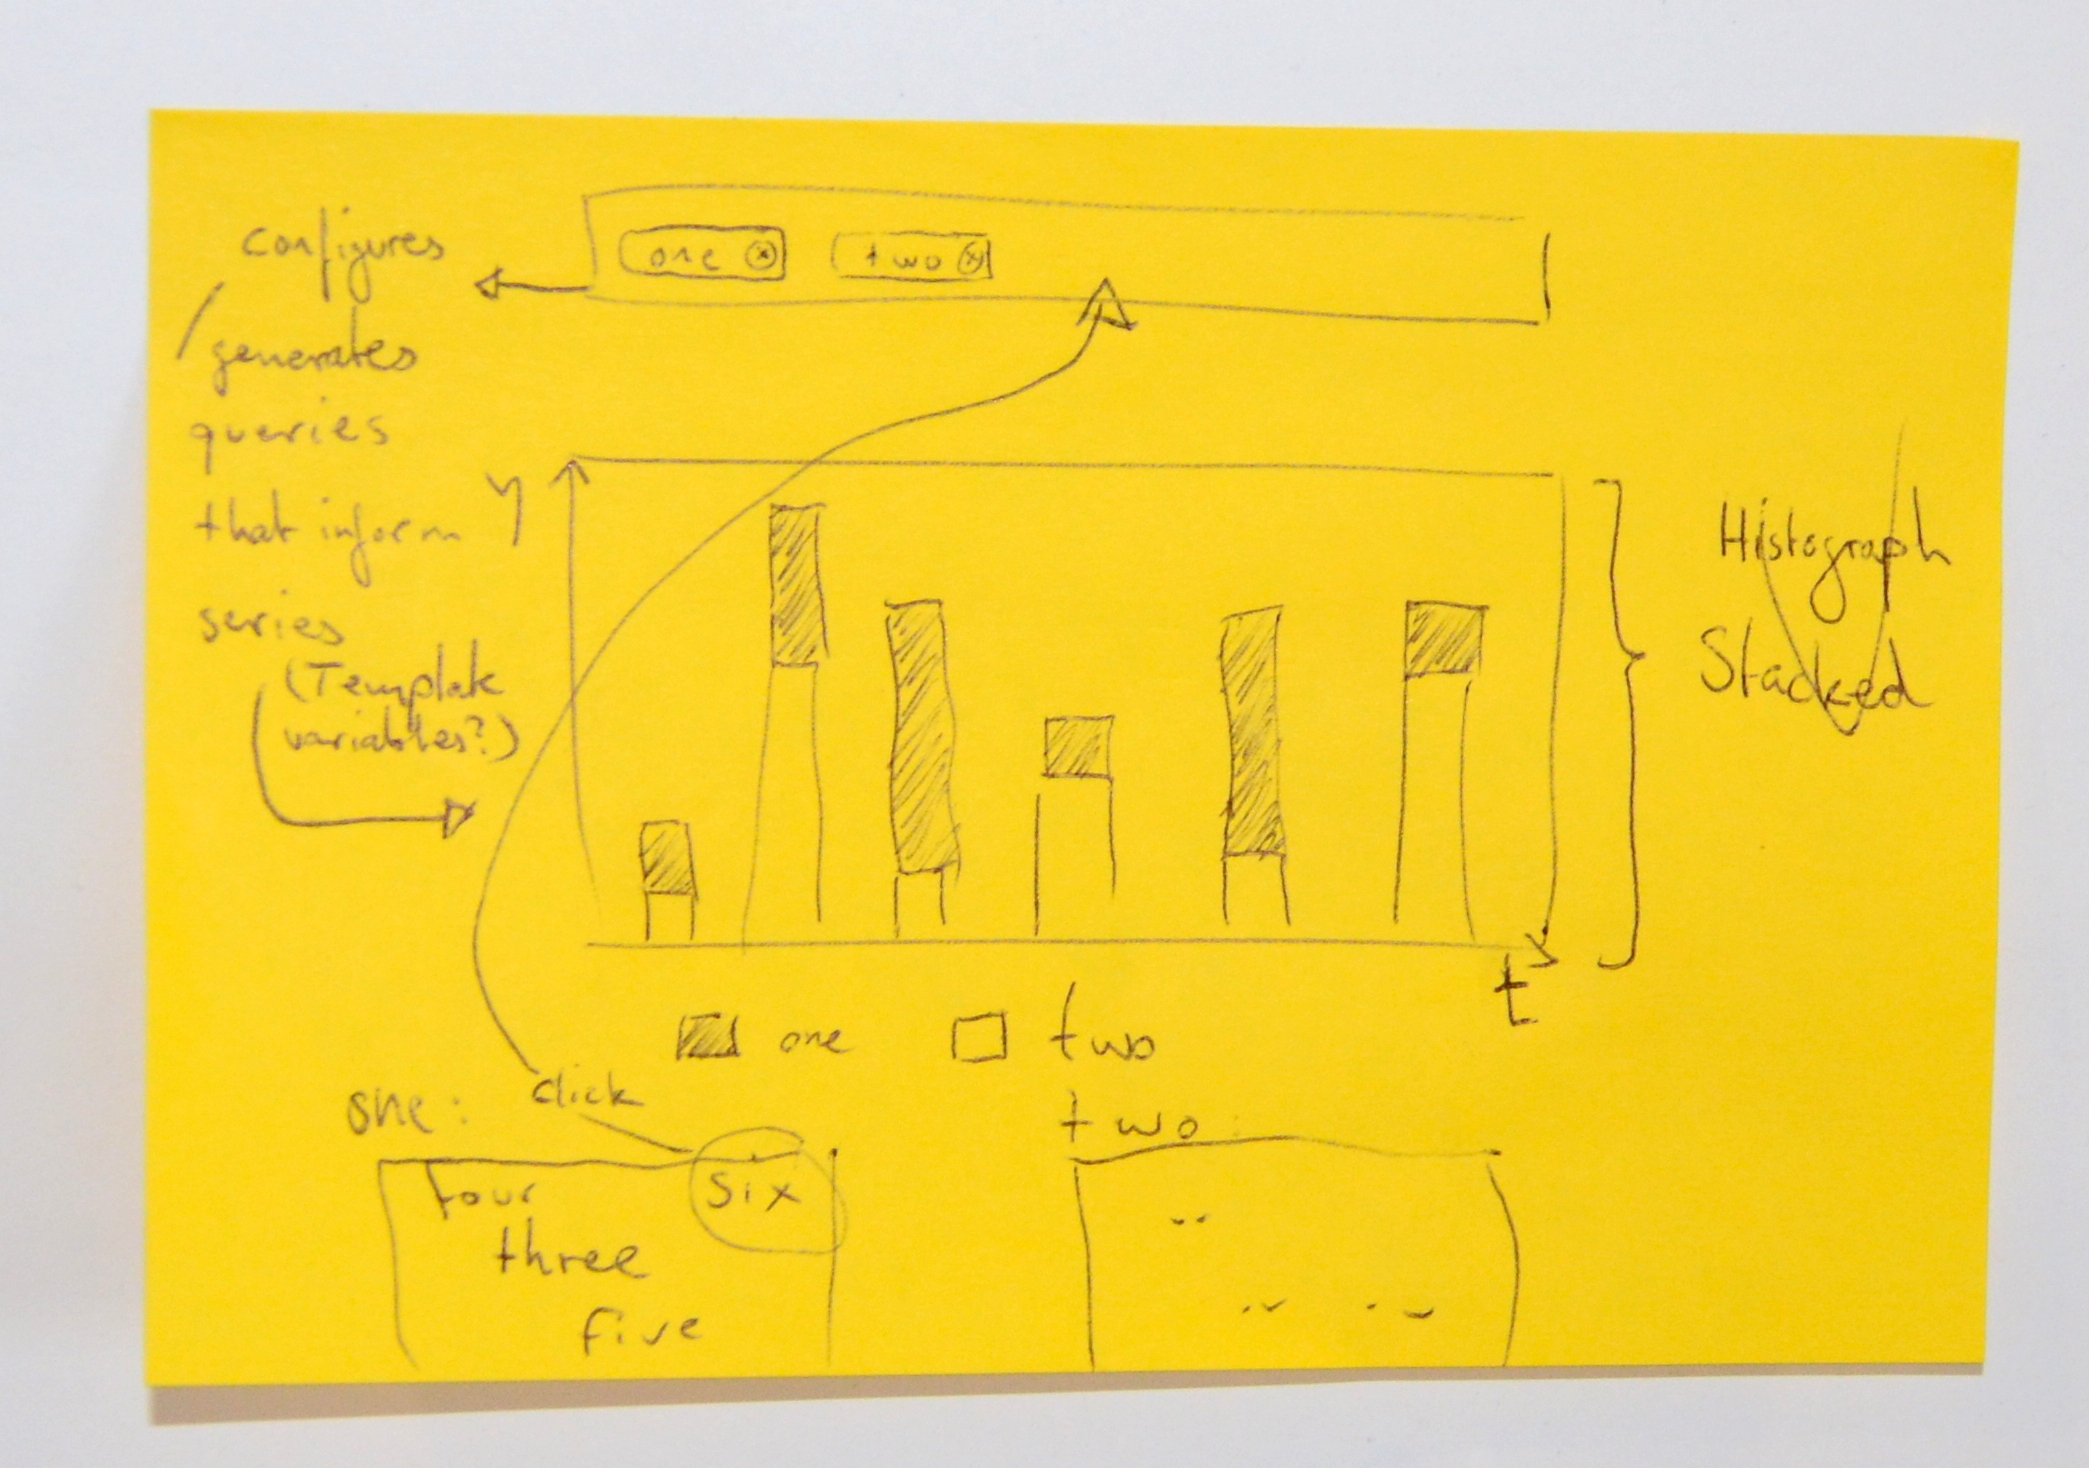 configures
/generates
queries
that inform
series
(Template
variables?)
one ⓧ two ⓧ
y
t
Histograph
Stacked
one two
one:
click
four six
three
five
two: